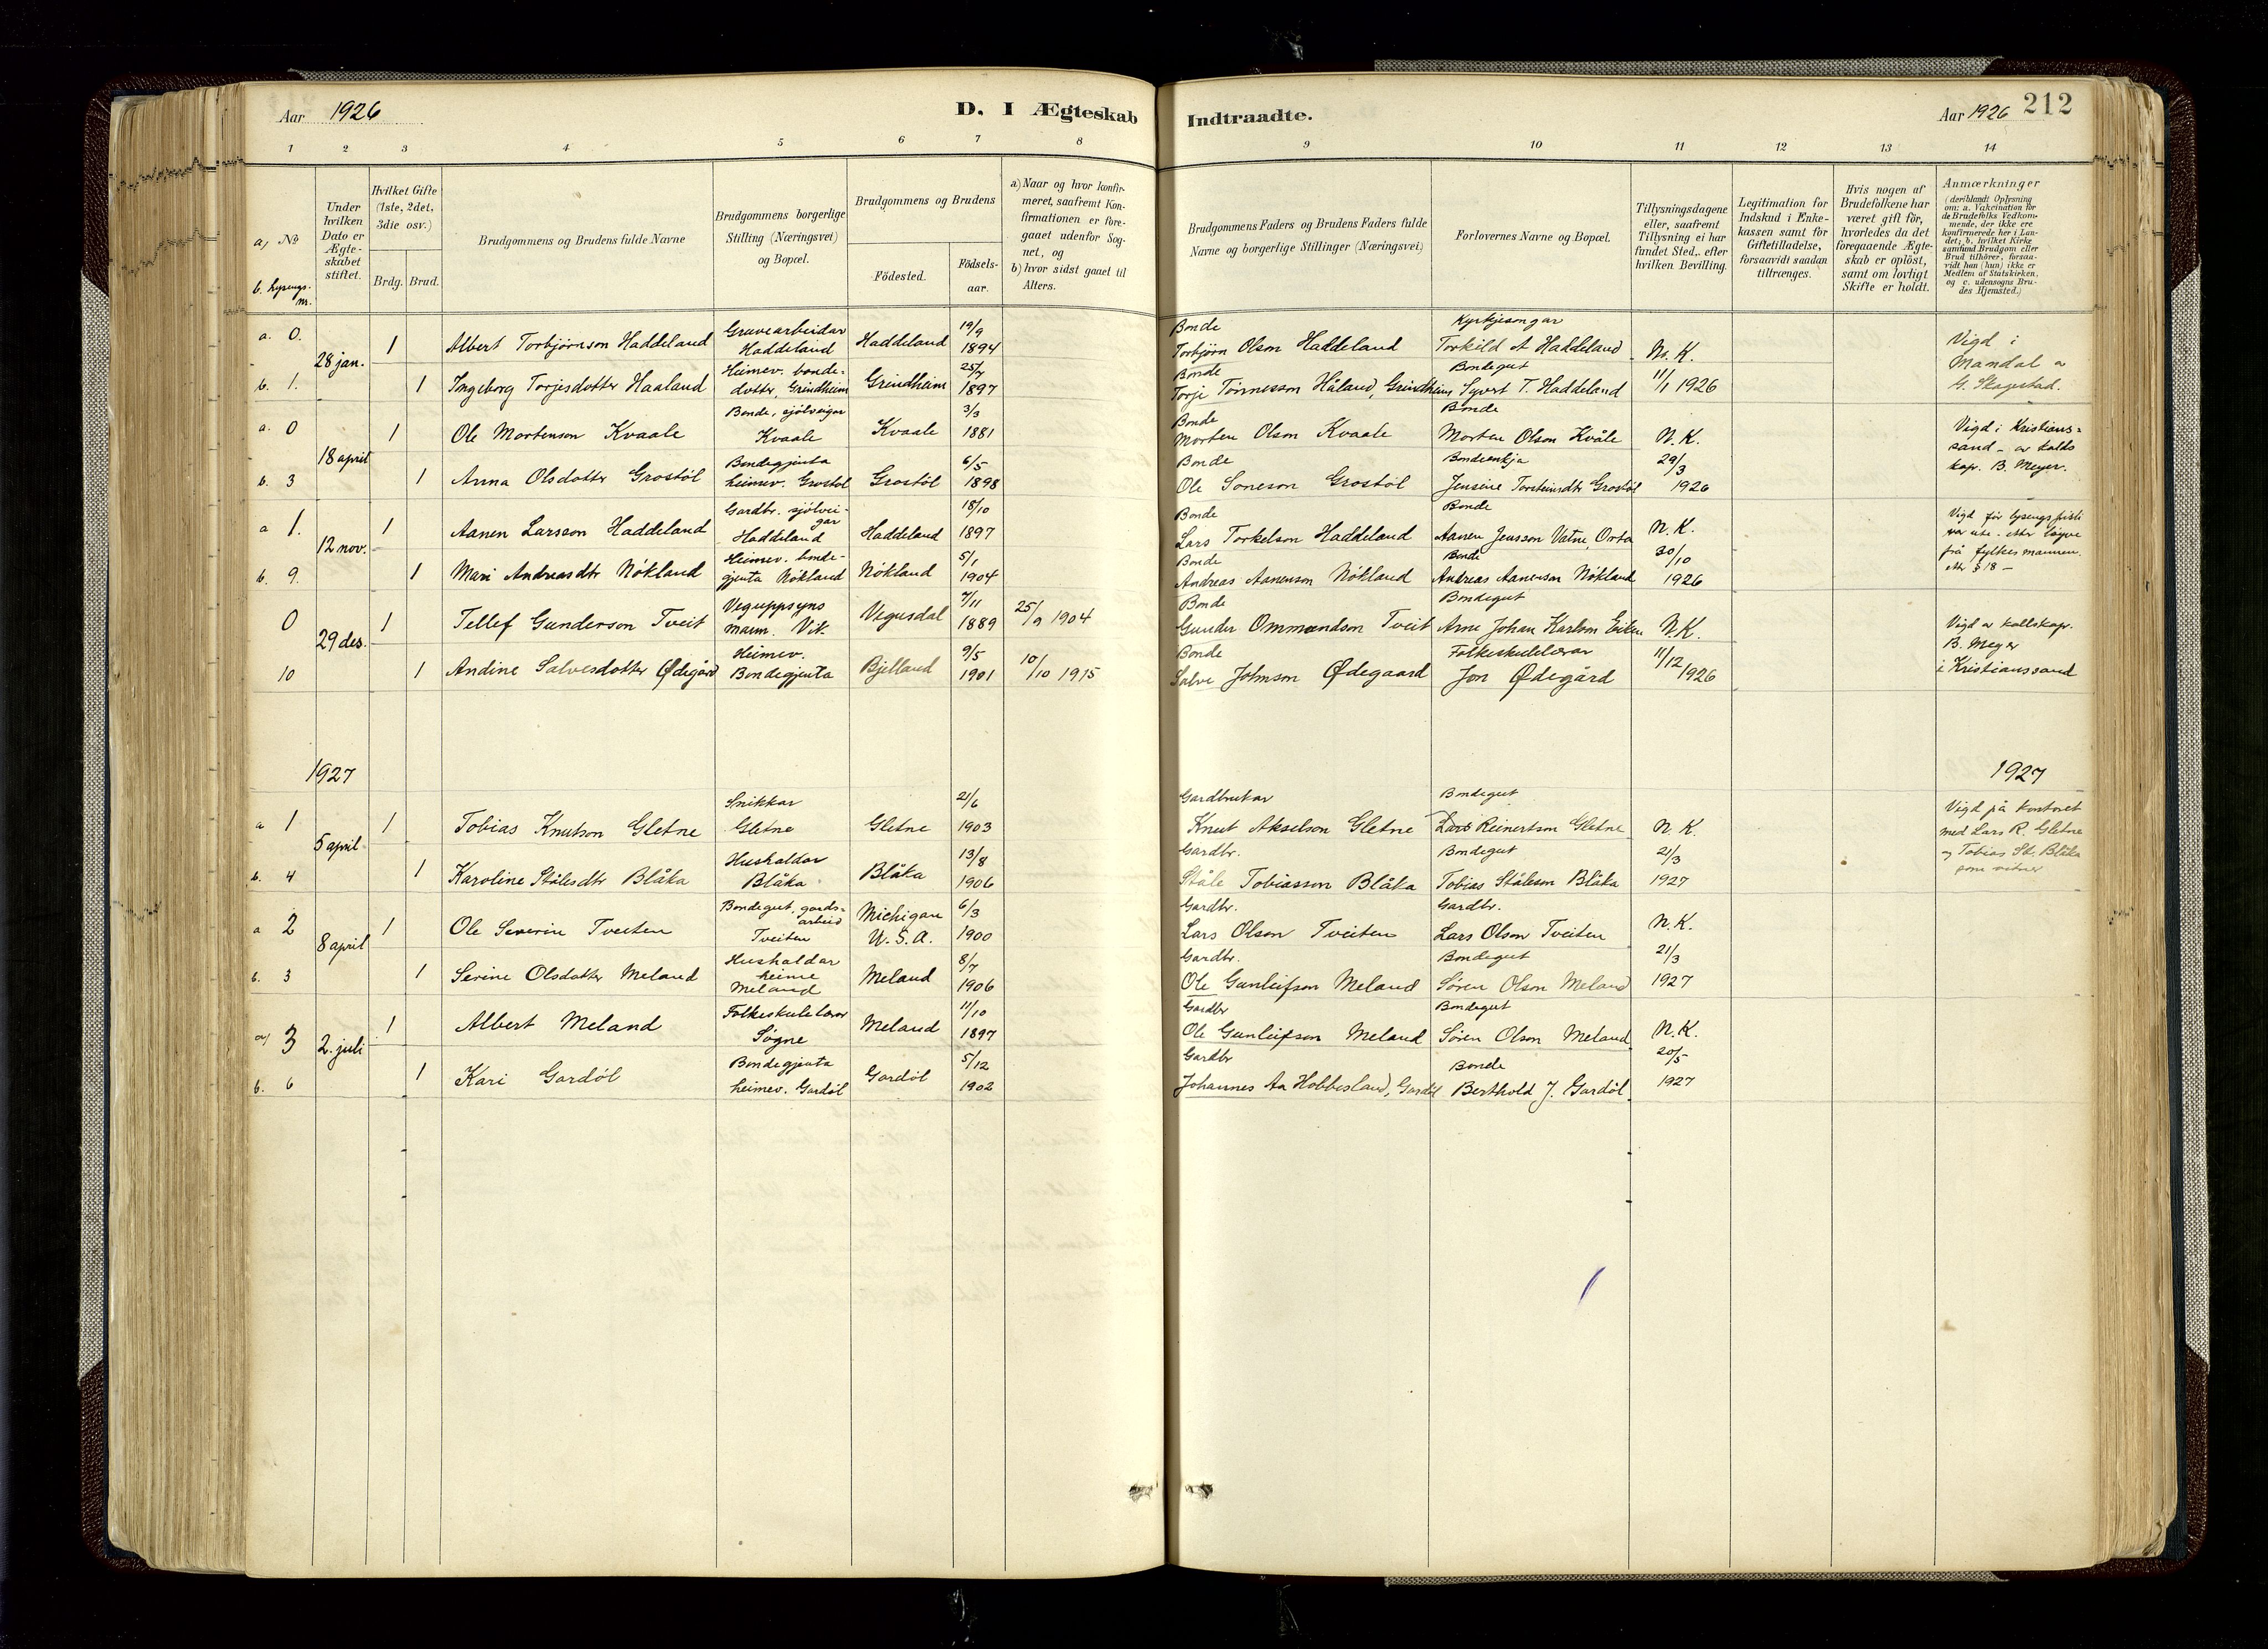 Aar 1926
D. I Ægteskab Indtraadte.
Aar 1926 212
1 2 3 4 5 6 7 8 9 10 11 12 13 14
a) No
b. lysings-nr.
Under hvilken Dato er Ægteskabet stiftet.
Hvilket Gifte (1ste, 2det, 3die osv.)
Brdg. Brud.
Brudgommens og Brudens fulde Navne
Brudgommens borgerlige Stilling (Næringsvei) og Bopæl.
Brudgommens og Brudens
Födested.
Födsels-aar.
a) Naar og hvor konfirmeret, saafremt Konfirmationen er foregaaet udenfor Sognet, og
b) hvor sidst gaaet til Alters.
Brudgommens Faders og Brudens Faders fulde Navne og borgerlige Stillinger (Næringsvei)
Forlovernes Navne og Bopæl.
Tillysningsdagene eller, saafremt Tillysning ei har fundet Sted, efter hvilken Bevilling.
Legitimation for Indskud i Enkekassen samt for Giftetilladelse, forsaavidt saadan tiltrænges.
Hvis nogen af Brudefolkene har været gift för, hvorledes da det foregaaende Ægteskab er oplöst, samt om lovligt Skifte er holdt.
Anmærkninger
(deriblandt Oplysning om: a. Vakcination for de Brudefolks Vedkommende, der ikke ere konfirmerede her i Landet; b. hvilket Kirkesamfund Brudgom eller Brud tilhörer, forsaavidt han (hun) ikke er Medlem af Statskirken, og c. udensogns Brudes Hjemsted.)
a. 0. 28 jan. 1 Albert Torbjørnson Haddeland Gruvearbeidar Haddeland Haddeland 19/9 1894 Bonde Torbjørn Olson Haddeland Kyrkjesongar Torkild A Haddeland N. K. Vigd i Mandal av G. Skagestad.
b. 1. 1 Ingeborg Torjesdotter Haaland Heimev. bondedotter, Grindheim Grindheim 25/7 1897 Bonde Torje Tønnesson Håland, Grindheim Bondegut Syvert T. Haddeland 11/1 1926
a. 0 18 april 1 Ole Mortenson Kvaale Bonde, sjølveigar Kvaale Kvaale 3/3 1881 Bonde Morten Olson Kvaale Bonde Morten Olson Kvåle N. K. Vigd i Kristianssand - av kallskap. B. Meyer.
b. 3 1 Anna Olsdotter Grostöl Bondegjenta heimev. Grostöl Grostöl 6/5 1898 Bonde Ole Soneson Grostöl Bondeenkja Jensine Torsteinsdtr Grostöl 29/3 1926
a 1. 12 nov. 1 Aanen Larsson Haddeland Gardbr. sjølveigar Haddeland Haddeland 18/10 1897 Bonde Lars Torkelson Haddeland Bonde Aanen Jensson Vatne, N. K. Vigd før lysingsfristi var ute - etter løyve frå fylkesmannen. etter § 18 -
b. 9. 1 Mari Andreasdtr Nökland Heimev. bondegjenta Nökland Nökland 5/1 1904 Bonde Andreas Aanenson Nökland Bonde Andreas Aanenson Nökland 30/10 1926
0 29 des. 1 Tellef Gunderson Tveit Veguppsynsmann. Vik Vegusdal 7/11 1889 25/9 1904 Bonde Gunder Ommundson Tveit Bondegut Arne Johan Karlson Eiken N. K. Vigd av kallskap. B. Meyer i Kristianssand
10 1 Andine Salvesdotter Ødegård Heimev. Bondegjenta Bjelland 9/5 1901 10/10 1915 Bonde Salve Johnson Ødegaard Folkeskulelærar Jon Ødegård 11/12 1926
1927
1927
a 1 5 april 1 Tobias Knutson Gletne Snikkar Gletne Gletne 21/6 1903 Gardbrukar Knut Akselson Gletne Bondegut Lars Reinertson Gletne N. K. Vigd på kontoret med Lars R. Gletne og Tobias St. Blåka som vitner
b. 4 1 Karoline Ståledtr Blåka Hushaldar Blåka Blåka 13/8 1906 Gardbr. Ståle Tobiasson Blåka Bondegut Tobias Ståleson Blåka 21/3 1927
a 2 8 april 1 Ole Severin Tveiten Bondegut, gardsarbeid Tveiten Michigan U. S. A. 6/3 1900 Gardbr. Lars Olson Tveiten Gardbr. Lars Olson Tveiten N. K.
b. 3 1 Serine Olsdotter Meland Hushaldar heime Meland Meland 8/7 1906 Gardbr. Ole Gunleifson Meland Bondegut Sören Olson Meland 21/3 1927
a) 3 2. juli 1 Albert Meland Folkeskulelærar Søgne Meland 11/10 1897 Gardbr Ole Gunleifson Meland Bondegut Sören Olson Meland N. K.
b. 6 1 Kari Gardöl Bondegjenta heimev. Gardöl Gardöl 5/12 1902 Gardbr Johannes Aa Hobbesland, Gardöl Bonde Berthold J. Gardöl 20/5 1927